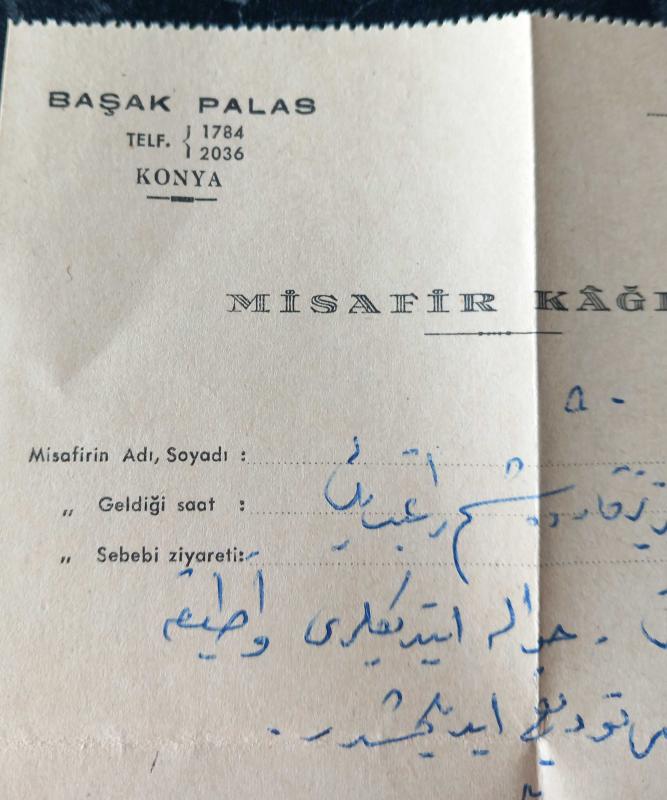 BAŞAK PALAS
TELF. } 1784
} 2036
KONYA
MİSAFİR KÂĞI
Misafirin Adı, Soyadı :
„ Geldiği saat :
„ Sebebi ziyareti:
حواله ایتدیکلری وظیفه
تودیع ایدیلمشدر.